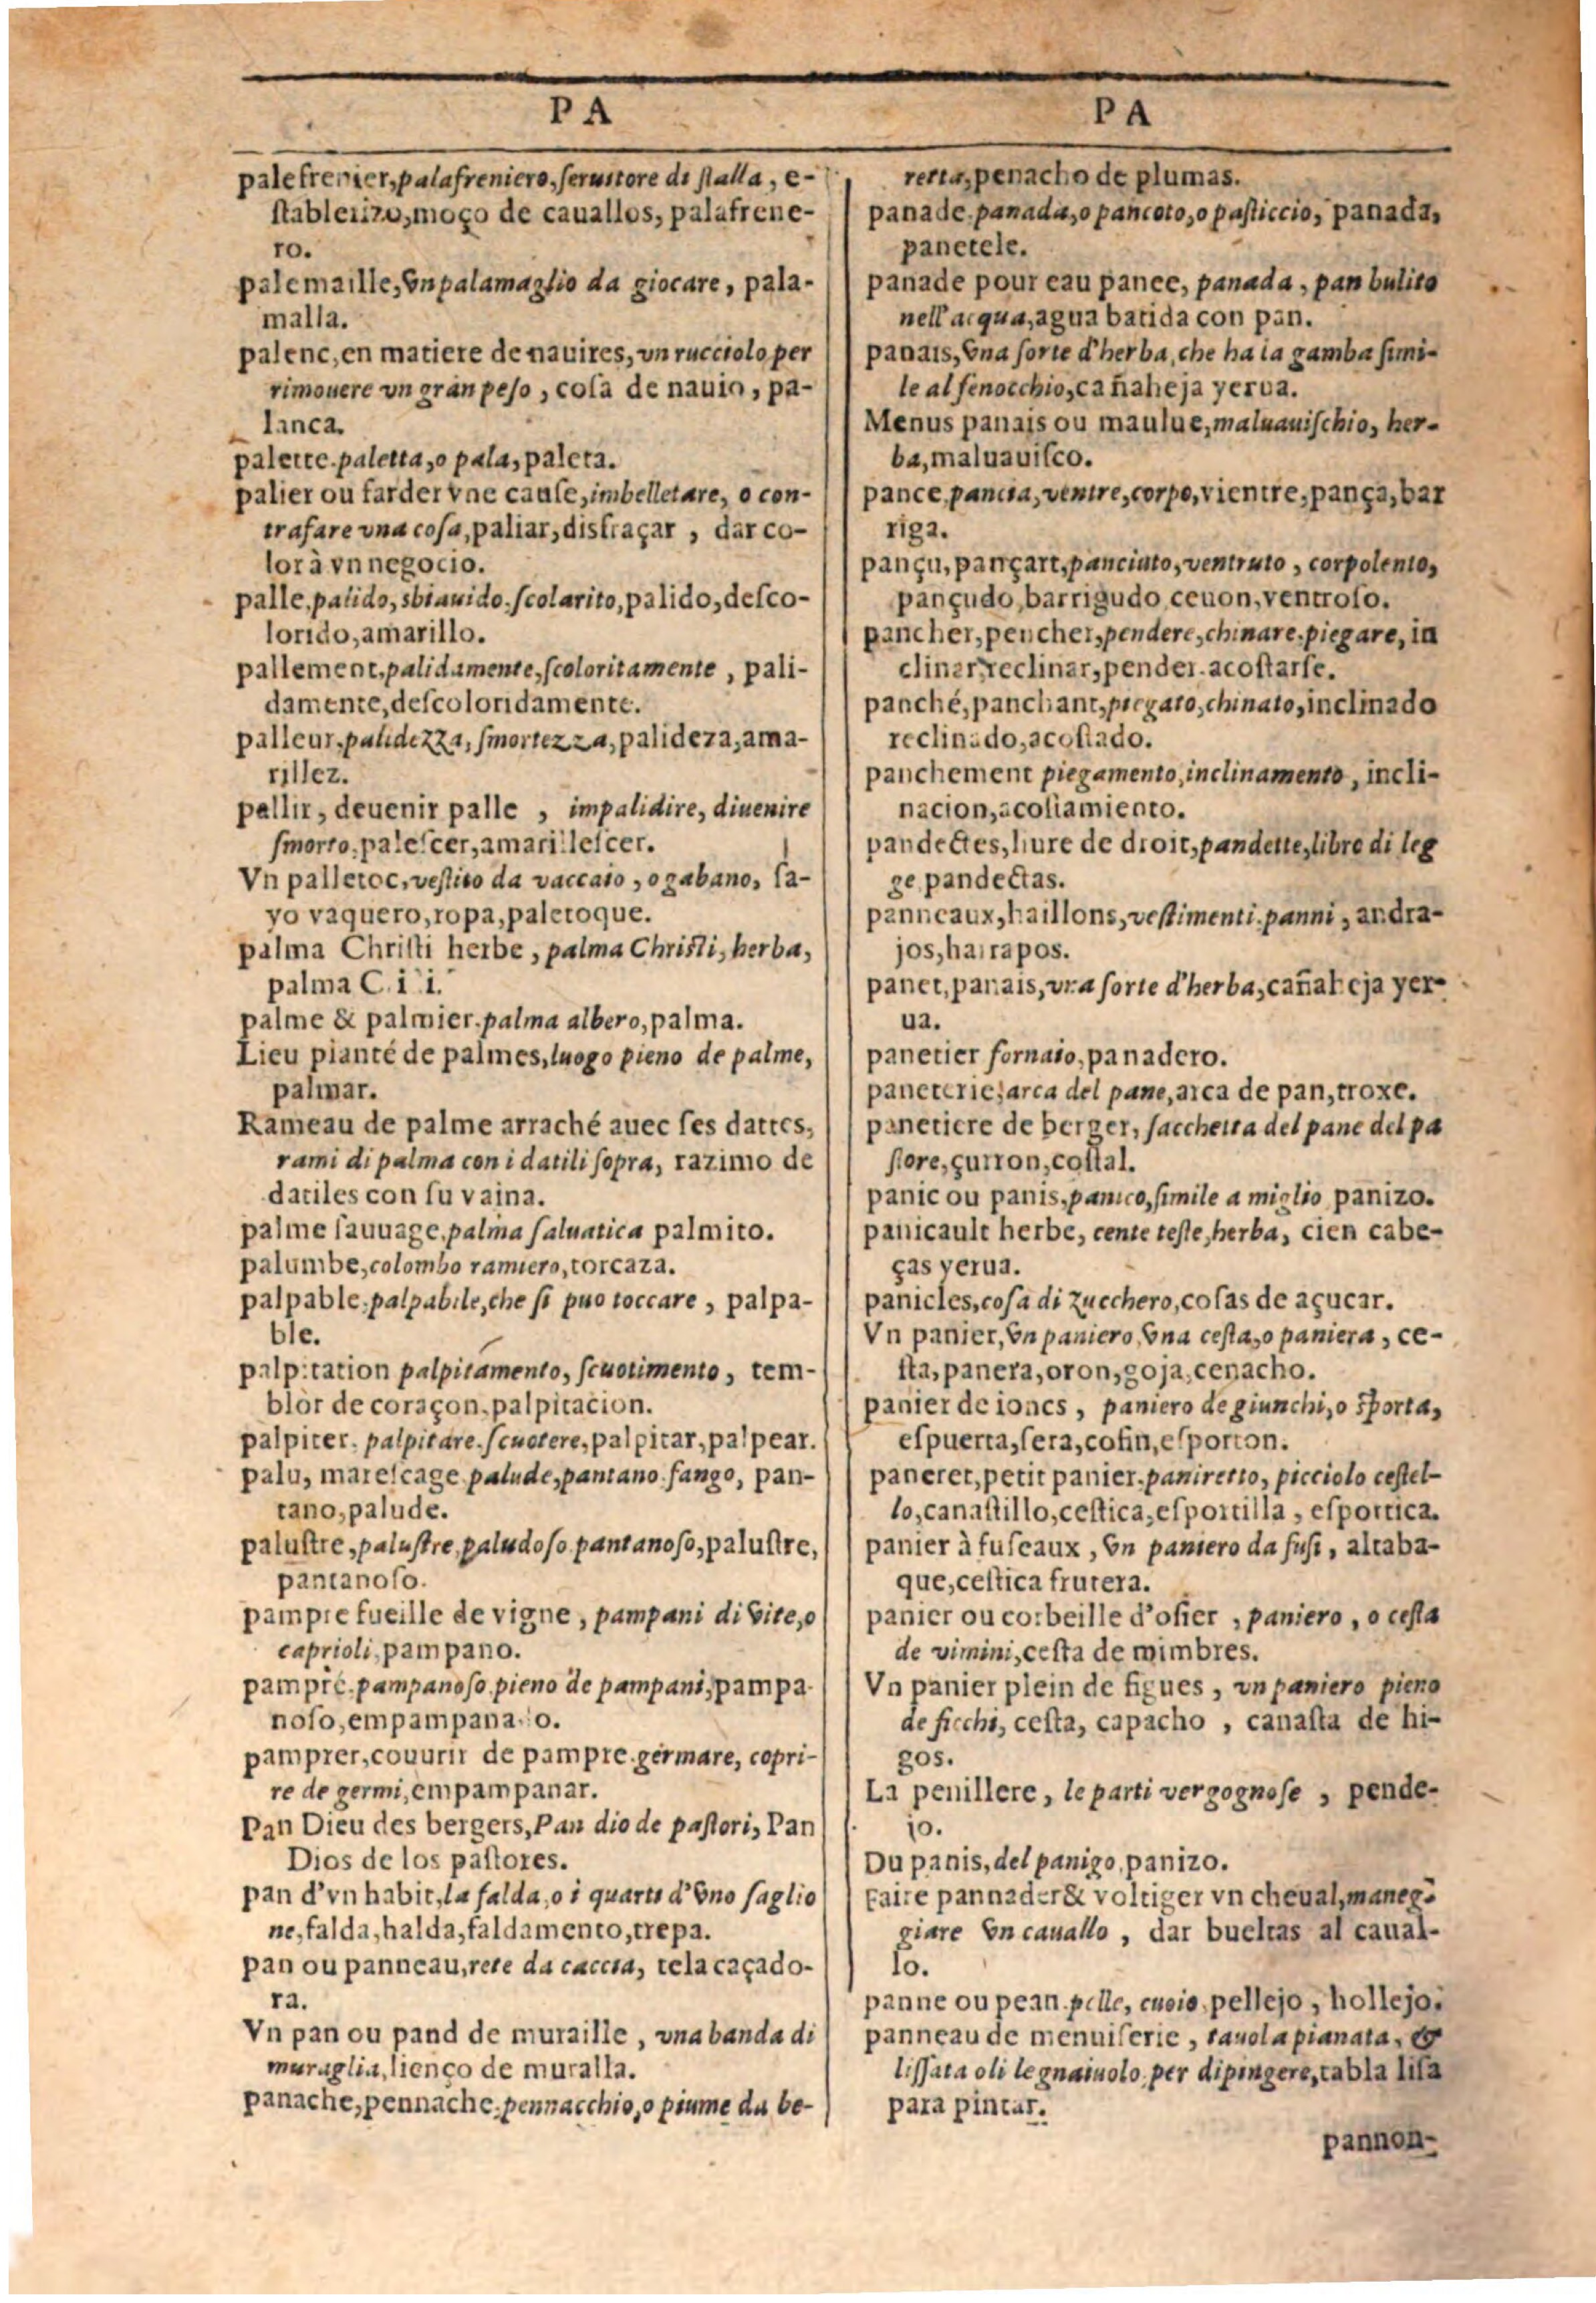 PA
palefrenier,palafreniero,ſeruitore di ſtalla, e-
ſtablerizo,moço de cauallos, palafrene-
ro.
palemaille,vn palamaglio da giocare, pala-
malla.
palenc,en matiere de nauires,vn rucciolo per
rimouere vn gran peſo, coſa de nauio, pa-
lanca.
palette.paletta,o pala,paleta.
palier ou farder vne cauſe,imbelletare, o con-
trafare vna coſa,paliar,disfraçar, dar co-
lor à vn negocio.
palle,palido,sbiauido.ſcolarito,palido,deſco-
lorido,amarillo.
pallement,palidamente,ſcoloritamente, pali-
damente,deſcoloridamente.
palleur,palidezza,ſmortezza,palideza,ama-
rillez.
pallir, deuenir palle, impalidire, diuenire
ſmorto,paleſcer,amarilleſcer.
Vn palletoc,veſtito da vaccaio, o gabano, ſa-
yo vaquero,ropa,paletoque.
palma Chriſti herbe, palma Chriſti, herba,
palma
palme & palmier.palma albero,palma.
Lieu planté de palmes,luogo pieno de palme,
palmar.
Rameau de palme arraché auec ſes dattes,
rami di palma con i datili ſopra, razimo de
datiles con ſu vaina.
palme ſauuage,palma ſaluatica palmito.
palumbe,colombo ramiero,torcaza.
palpable,palpabile,che ſi puo toccare, palpa-
ble.
palpitation palpitamento, ſcuotimento, tem-
blor de coraçon,palpitacion.
palpiter, palpitare.ſcuotere,palpitar,palpear.
palu, mareſcage palude,pantano fango, pan-
tano,palude.
paluſtre,paluſtre,paludoſo pantanoſo,paluſtre,
pantanoſo.
pampre fueille de vigne, pampani di vite,o
caprioli,pampano.
pampré.pampanoſo pieno de pampani,pampa-
noſo,empampanado.
pamprer,couurir de pampre.germare, copri-
re de germi,empampanar.
Pan Dieu des bergers,Pan dio de paſtori, Pan
Dios de los paſtores.
pan d'vn habit,la falda,o i quarti d'vno ſaglio
ne,falda,halda,faldamento,trepa.
pan ou panneau,rete da caccia, tela caçado-
ra.
Vn pan ou pand de muraille, vna banda di
muraglia,lienço de muralla.
panache,pennache.pennacchio,o piume da be-
PA
retta,penacho de plumas.
panade.panada,o pancoto,o paſticcio, panada,
panetele.
panade pour eau panee, panada, pan bulito
nell'acqua,agua batida con pan.
panais,vna ſorte d'herba,che ha la gamba ſimi-
le al fenocchio,cañaheja yerua.
Menus panais ou maulue,maluauiſchio, her-
ba,maluauiſco.
pance,pancia,ventre,corpo,vientre,pança,bar
riga.
pançu,pançart,panciuto,ventruto, corpolento,
pançudo,barrigudo ceuon,ventroſo.
pancher,pencher,pendere,chinare,piegare, in
clinar,reclinar,pender.acoſtarſe.
panché,panchant,piegato,chinato,inclinado
reclinado,acoſtado.
panchement piegamento,inclinamento, incli-
nacion,acoſtamiento.
pandectes,liure de droit,pandette,libro di leg
ge,pandectas.
panneaux,haillons,veſtimenti.panni, andra-
jos,harrapos.
panet,panais,vna ſorte d'herba,cañaheja yer-
ua.
panetier fornaio,panadero.
paneterie,arca del pane,arca de pan,troxe.
panetiere de berger, ſacchetta del pane del pa
ſtore,çurron,coſtal.
panic ou panis,panico,ſimile a miglio panizo.
panicault herbe, cente teſte,herba, cien cabe-
ças yerua.
panicles,coſa di zucchero,coſas de açucar.
Vn panier,vn paniero,vna ceſta,o paniera, ce-
ſta,panera,oron,goja,cenacho.
panier de ioncs, paniero de giunchi,o ſporta,
eſpuerta,ſera,cofin,eſporton.
paneret,petit panier.paniretto, picciolo ceſtel-
lo,canaſtillo,ceſtica,eſportilla, eſportica.
panier à fuſeaux, vn paniero da fuſi, altaba-
que,ceſtica frutera.
panier ou corbeille d'oſier, paniero, o ceſta
de vimini,ceſta de mimbres.
Vn panier plein de figues, vn paniero pieno
de ficchi, ceſta, capacho, canaſta de hi-
gos.
La penillere, le parti vergognoſe, pende-
jo.
Du panis,del panigo,panizo.
Faire pannader & voltiger vn cheual,maneg-
giare vn cauallo, dar bueltas al caual-
lo.
panne ou pean.pelle, cuoio,pellejo, hollejo.
panneau de menuiſerie, tauola pianata, &
liſſata o li legnaiuolo,per dipingere,tabla liſa
para pintar.
pannon-